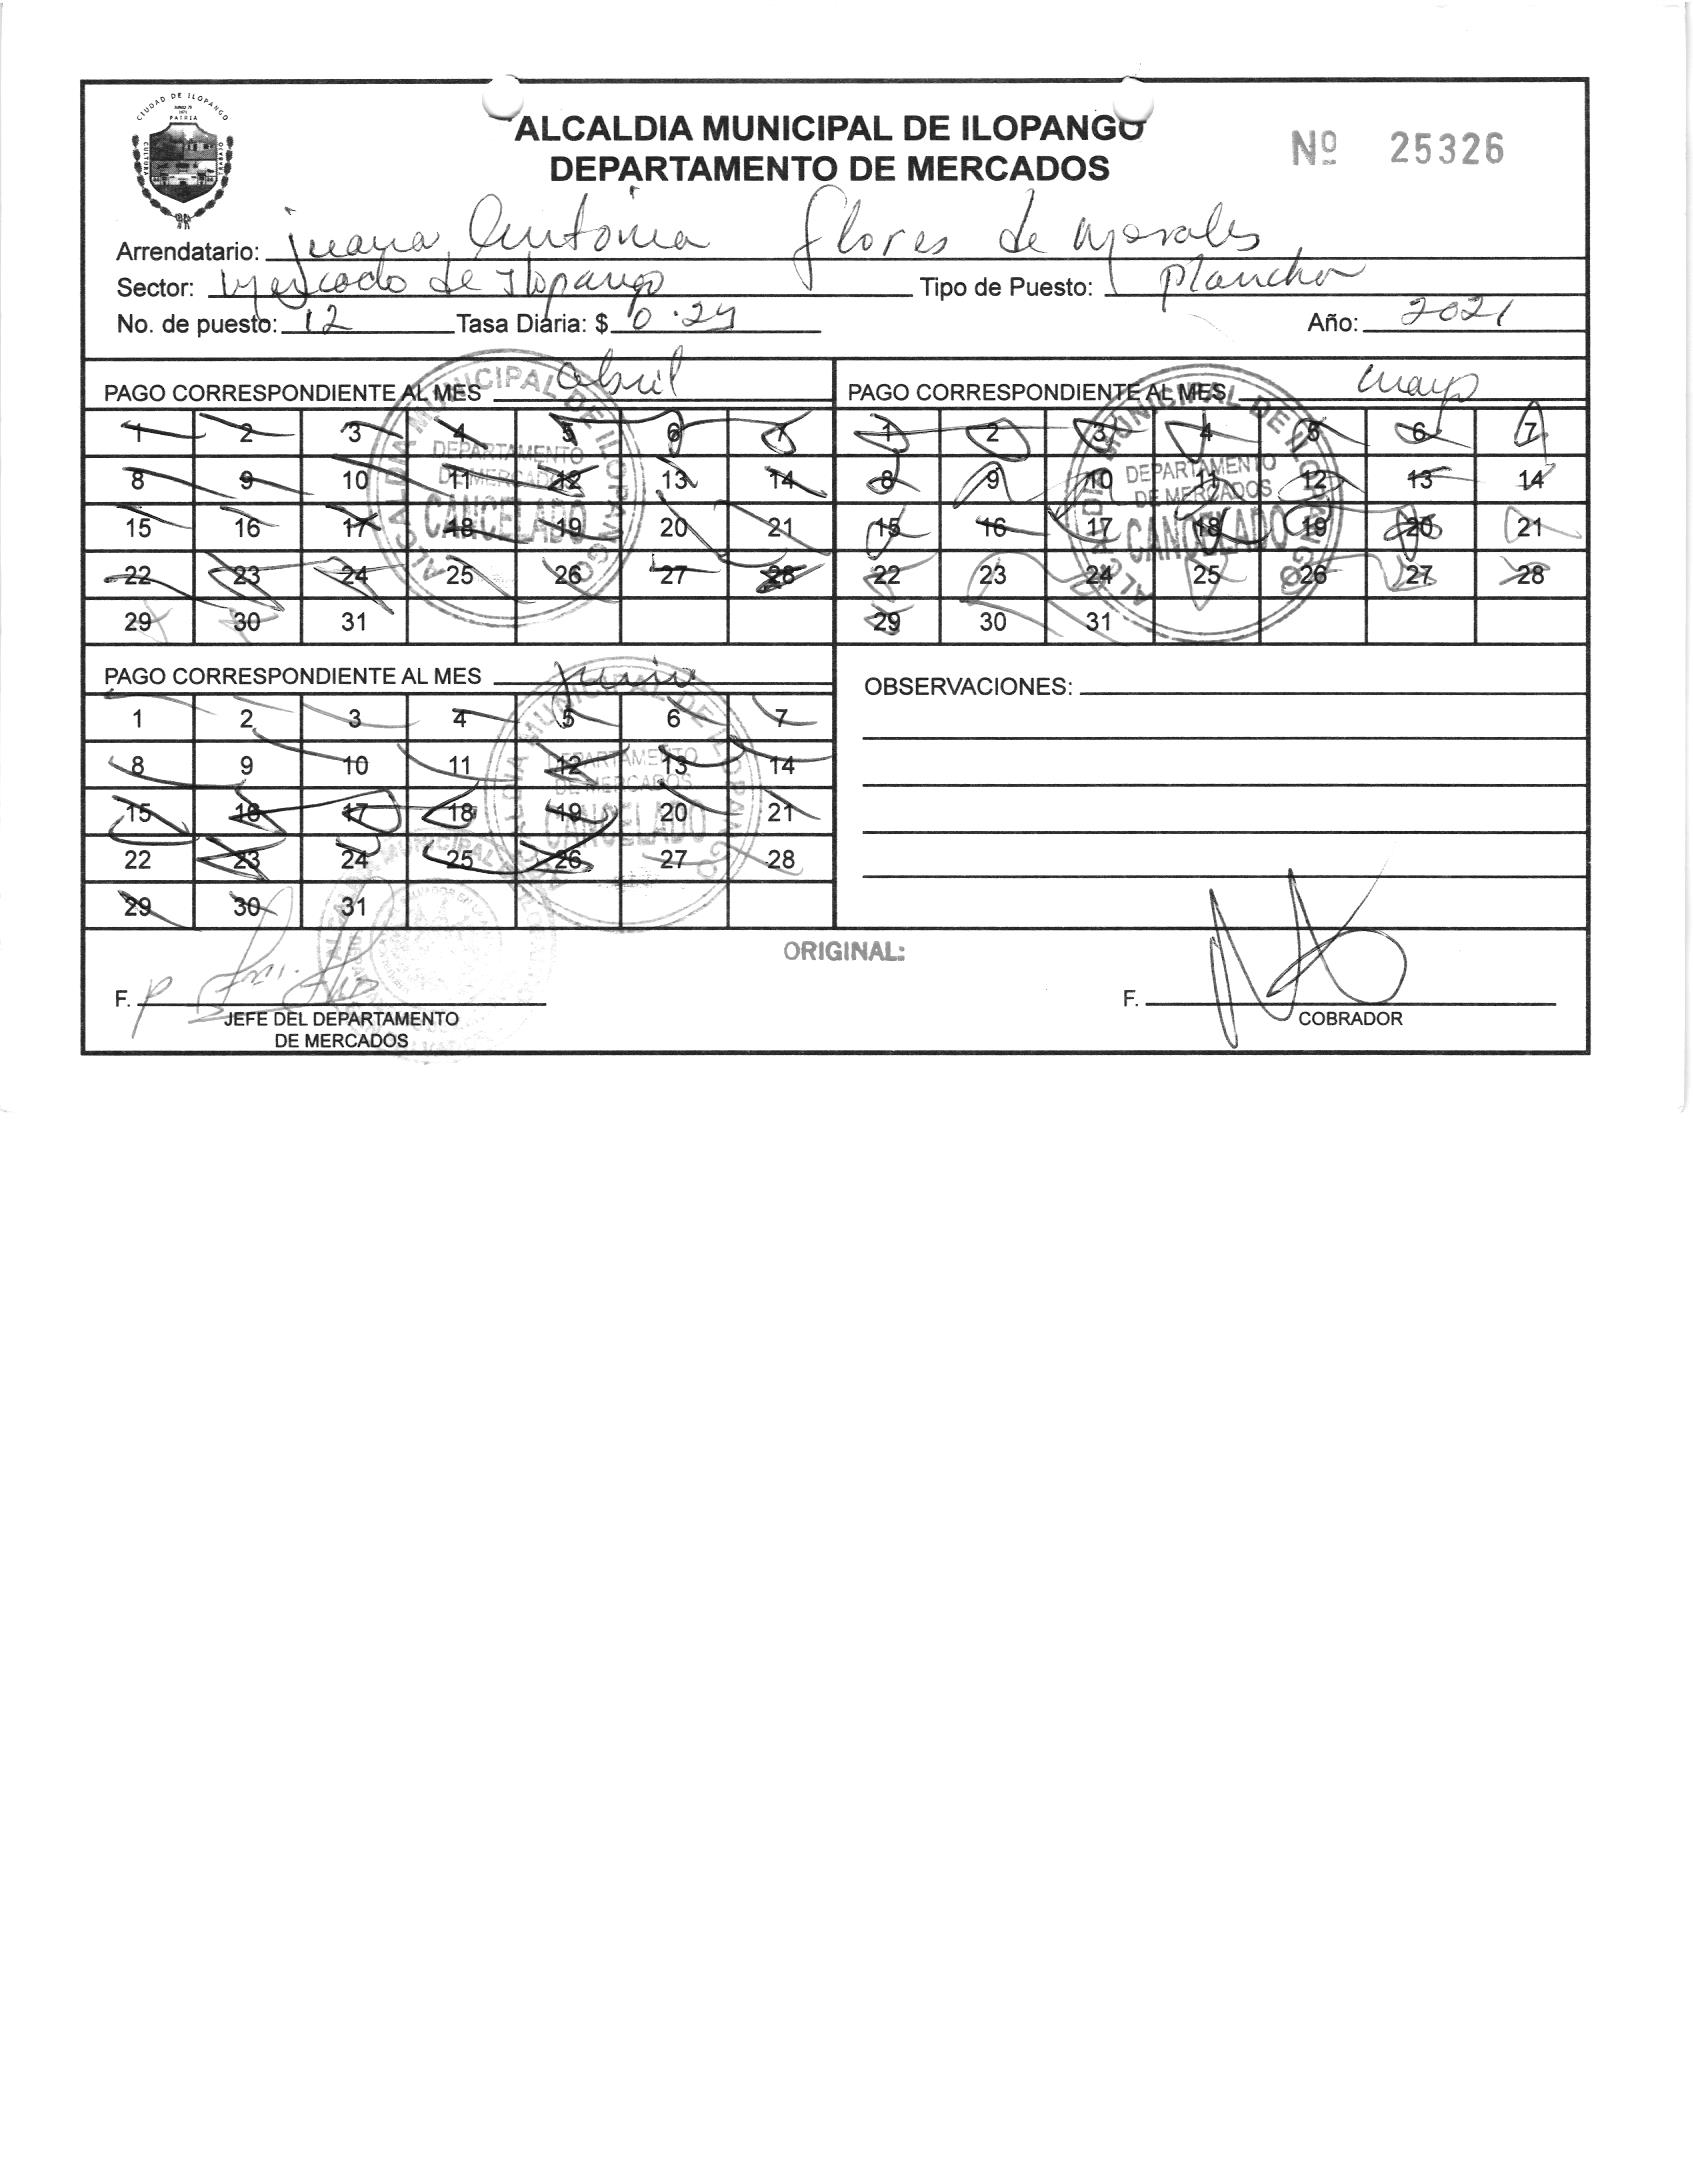 CIUDAD DE ILOPANGO
PATRIA
CULTURA
TRABAJO
ALCALDIA MUNICIPAL DE ILOPANGO
DEPARTAMENTO DE MERCADOS
Nº 25326
Arrendatario: juana Antonia flores de Morales
Sector: Mercado de Ilopango Tipo de Puesto: Plancha
No. de puesto: 12 Tasa Diaria: $ 0.24 Año: 2021
PAGO CORRESPONDIENTE AL MES abril
1 2 3 4 5 6 7
8 9 10 11 12 13 14
15 16 17 18 19 20 21
22 23 24 25 26 27 28
29 30 31
ALCALDIA MUNICIPAL DE ILOPANGO
DEPARTAMENTO
DE MERCADOS
CANCELADO
PAGO CORRESPONDIENTE AL MES mayo
1 2 3 4 5 6 7
8 9 10 11 12 13 14
15 16 17 18 19 20 21
22 23 24 25 26 27 28
29 30 31
ALCALDIA MUNICIPAL DE ILOPANGO
DEPARTAMENTO
DE MERCADOS
CANCELADO
PAGO CORRESPONDIENTE AL MES junio
1 2 3 4 5 6 7
8 9 10 11 12 13 14
15 16 17 18 19 20 21
22 23 24 25 26 27 28
29 30 31
ALCALDIA MUNICIPAL DE ILOPANGO
DEPARTAMENTO
DE MERCADOS
CANCELADO
OBSERVACIONES:
ORIGINAL:
F.
JEFE DEL DEPARTAMENTO
DE MERCADOS
F.
COBRADOR